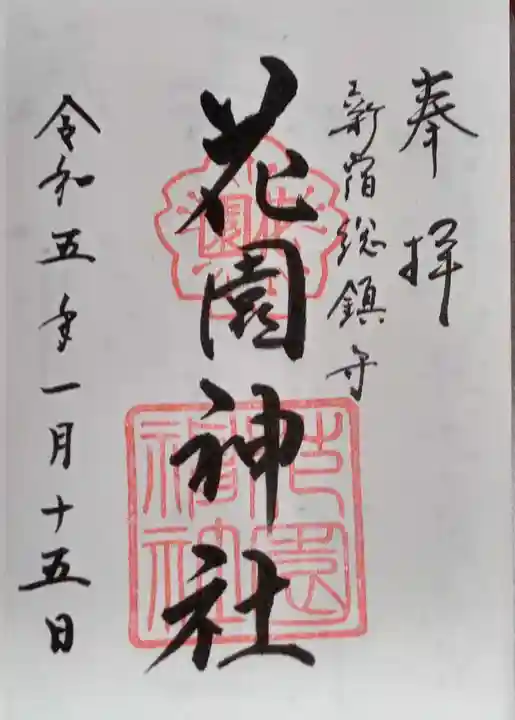 奉拝
新宿総鎮守
花園神社
令和五年一月十五日
花園神社